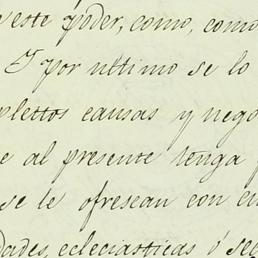 este poder, como, como
Y por ultimo se lo
plettos causas y nego
e al presente tenga p
se le ofrescan con cu
dades, ecleciasticas ó sec